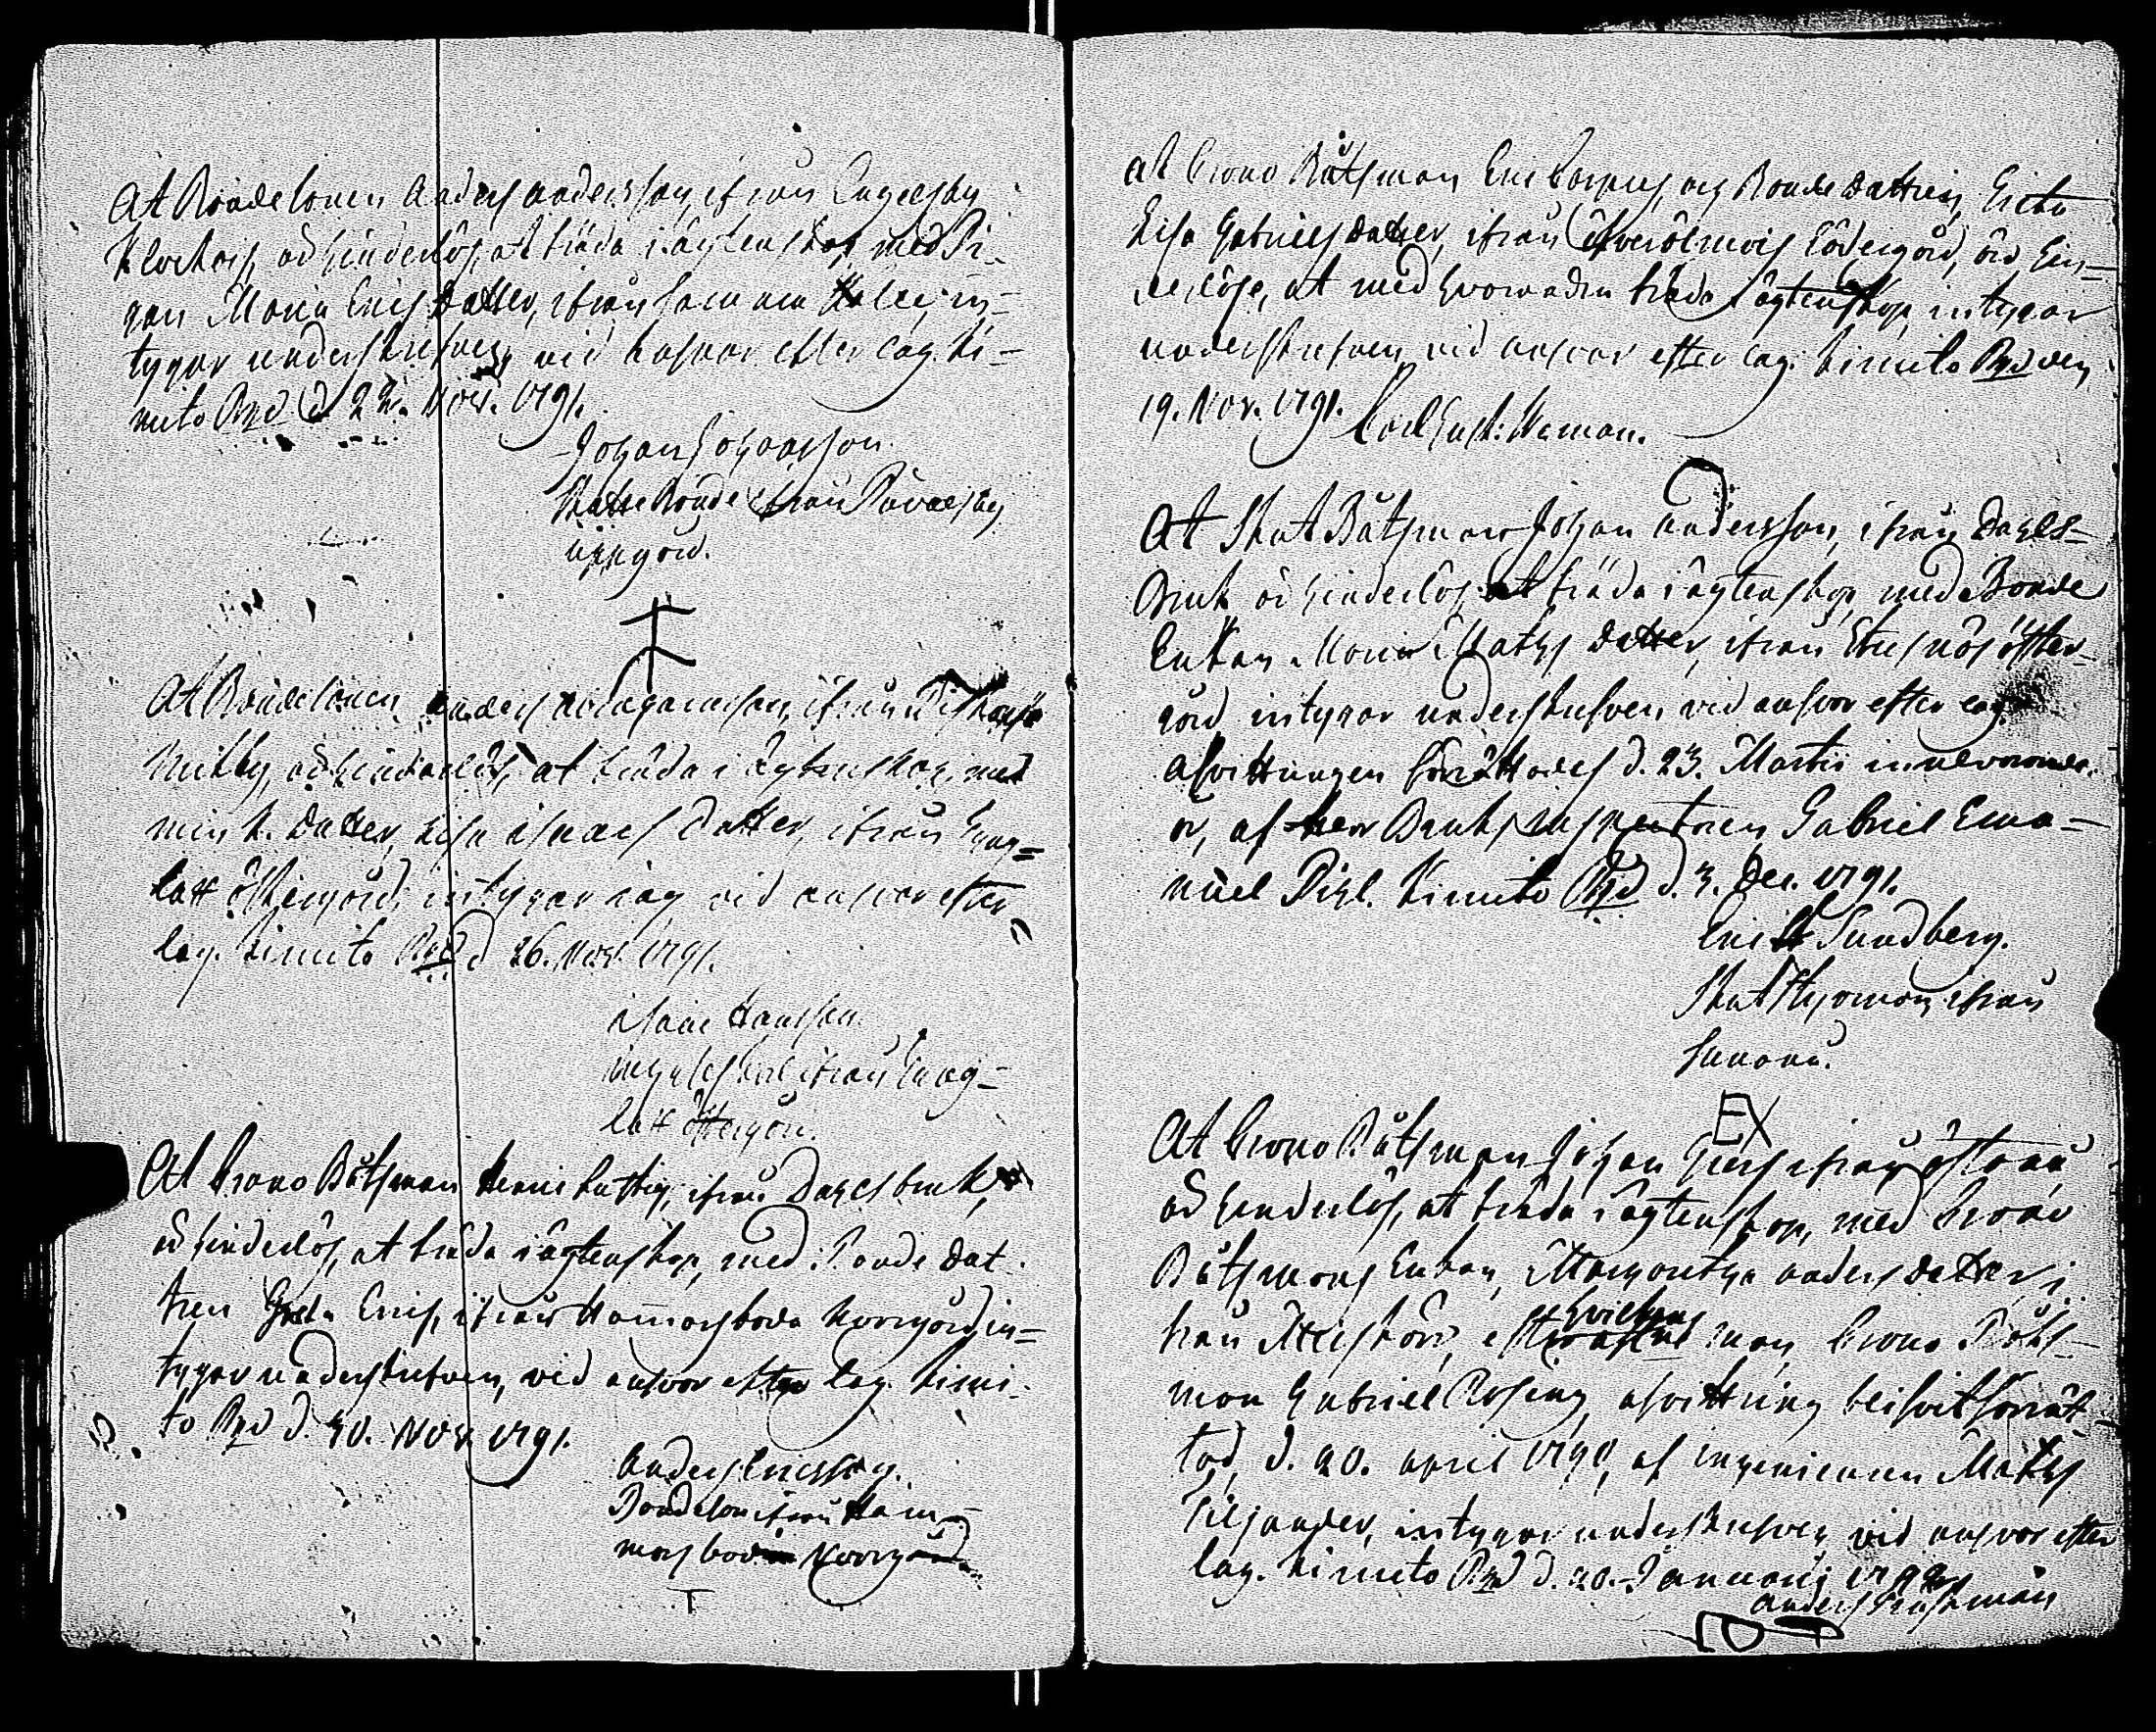 At Bondesonen Anders Andersson, ifrån Engelsby
Klockars, är hinderlös, at träda i ägtenskap, med Pi-
gan Maria Erics Datter, ifrån samma ställe, in-
tygar underskrifven, vid answar efter lag. Ki-
mito Pgd d 22. Nov. 1791.
Johan Johansson
Skatte Bonde ifrån Påvalsby
uppgård.
At Bondesonen Anders ifrån
Mellby, är hinderlös, at träda i ägtenskap, med
min k. Datter, Lisa Isaacs Datter, ifrån Eng-
latt östergård, intygar jag vid answar efter
lag. Kimito Pgd d 26. Nov. 1791.
Isaac Hansson.
ifrån Eng-
latt östergård.
At Crono Båtsman Henric Luttig, ifrån Dahlsbruk,
är hinderlös, at träda i ägtenskap, med Bonde Dat-
tren Greta Erics, ifrån Hammarsboda Norrgård, in-
tygar underskrifven, vid answar efter lag. Kimi-
to Pgd d. 30. Nov. 1791.
Anders Ericsson.
Bondeson ifrån Ham-
marsboda Norrgård
At Crono Båtsman Eric och Bonde Dattren, Greta
Lisa Gabriels Datter, ifrån Södergård, äro hin-
derlöse, at med hvarandra träda i ägtenskap, intygar
underskrifven, vid answar efter lag. Kimito Pgd den
19. Nov. 1791.
Carl Gust: Weman.
At Skat Båtsman Johan Andersson, ifrån Dahls-
Bruk är hinderlös, at träda i ägtenskap, med Bonde
Enkan Maria Mats Datter, ifrån öster-
gård intygar underskrifven vid answar efter lag.
afvittringen förrättades d. 23. Martii innevarande
år, af herr Bruks inspectoren Gabriel Ema-
nuel Pihl. Kimito Pgd d. 3. Dec. 1791.
Eric Sundberg.
Skat Styrman ifrån
EX
At Crono Båtsman Johan ifrån
är hinderlös, at träda i ägtenskap, med Crono
Båtsmans Enkan, Margaretha Anders Datter i-
från efter hvilkens man Crono Båts-
man Gabriel afvittring blifvit förrät-
tad, d. 20. April 1790, af ingenieuren Mats
Tiljander, intygar underskrifven, vid answar efter
lag. Kimito Pgd d. 20. Januarii 1792
Anders